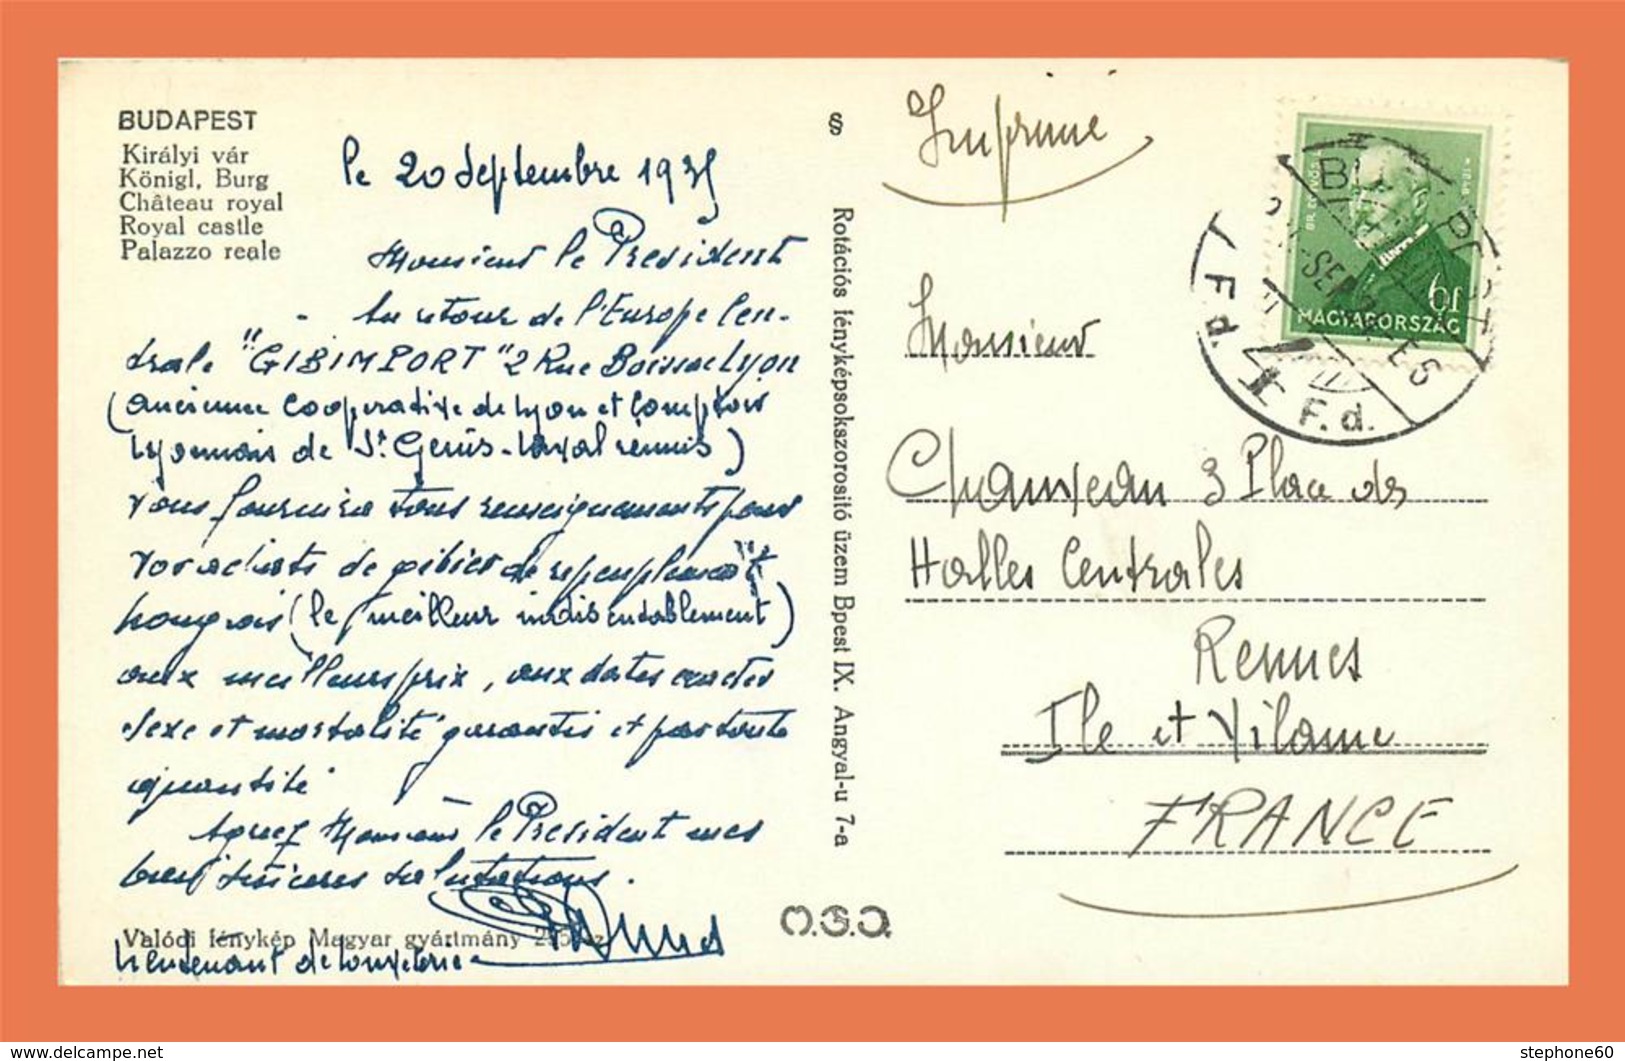 BUDAPEST
Királyi vár
Königl. Burg
Château royal
Royal castle
Palazzo reale
le 20 Septembre 1935
Monsieur le President
Au retour de l'Europe Cen-
trale "GIBIMPORT" 2 Rue Boissac Lyon
(ancienne Cooperative de Lyon et Comptoir
Lyonnais de St. Genis-Laval réunis)
vous fournira tous renseignements pour
vos achats de gibier de repeuplement
hongrois (le meilleur indiscutablement)
aux meilleurs prix, aux dates exactes
sexe et mortalité garantis et par toute
quantité
Agreez Monsieur le President mes
bien sinceres salutations.
Valódi fénykép Magyar gyártmány
Lieutenant de Louveterie
§
Rotációs fényképsokszorosító üzem Bpest IX. Angyal-u 7-a
M.S.O.
Imprimé
BR. EÖTVÖS
6f
MAGYARORSZÁG
BUDAPEST
SEP
F. d.
F. d.
Monsieur
Chauveau 3 Place des
Halles Centrales
Rennes
Ile et Vilaine
FRANCE
www.delcampe.net
stephone60